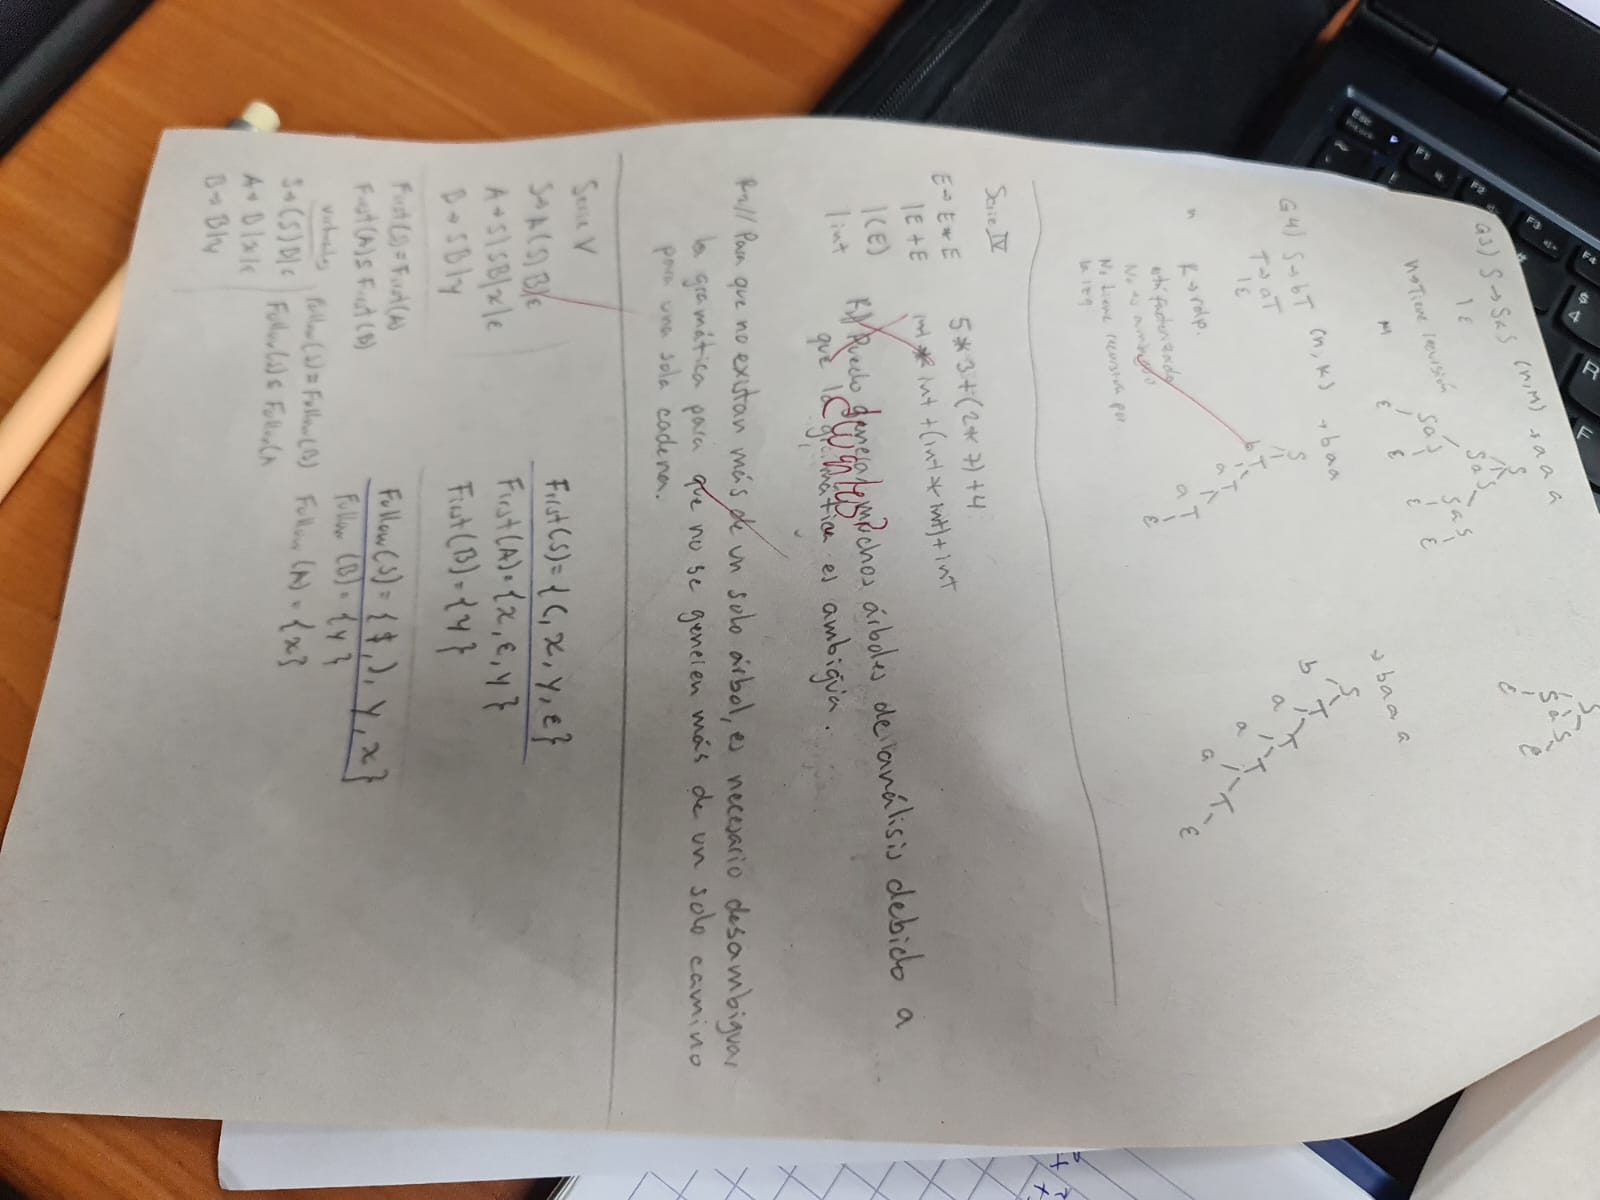 G3) S→SaS (n,M) →aaa
|ε
n→Tiene recursión
M
S
SaS
SaS SaS
ε ε ε ε
S
SaS
ε ε
G4) S→bT (n,K) →baa
T→aT
|ε
n K→rdp.
está factorizado
No es ambiguo
No tiene recursion por
la izq
S
b T
a T
a T
ε
→baaa
S
b T
a T
a T
a T
ε
Serie IV
E→E*E
|E+E
|(E)
|int
5*3+(2*7)+4
int * int +(int * int)+int
R1// Puedo generar muchos árboles de análisis debido a
que la gramática es ambigua.
cuántos?
R2// Para que no existan más de un solo árbol, es necesario desambiguar
la gramática para que no se generen más de un solo camino
para una sola cadena.
Serie V
S→A(S)B|ε
A→S|SB|x|ε
B→SB|y
First(S)={(, x, y, ε}
First(A)={x, ε, y}
First(B)={y}
First(S)=First(A)
First(A)⊆First(B)
S→(S)B|ε
A→B|x|ε
B→B|y
Follow(S)=Follow(B)
Follow(S)⊆Follow(A
Follow(S)={$, ), y, x}
Follow(B)={y}
Follow(A)={x}